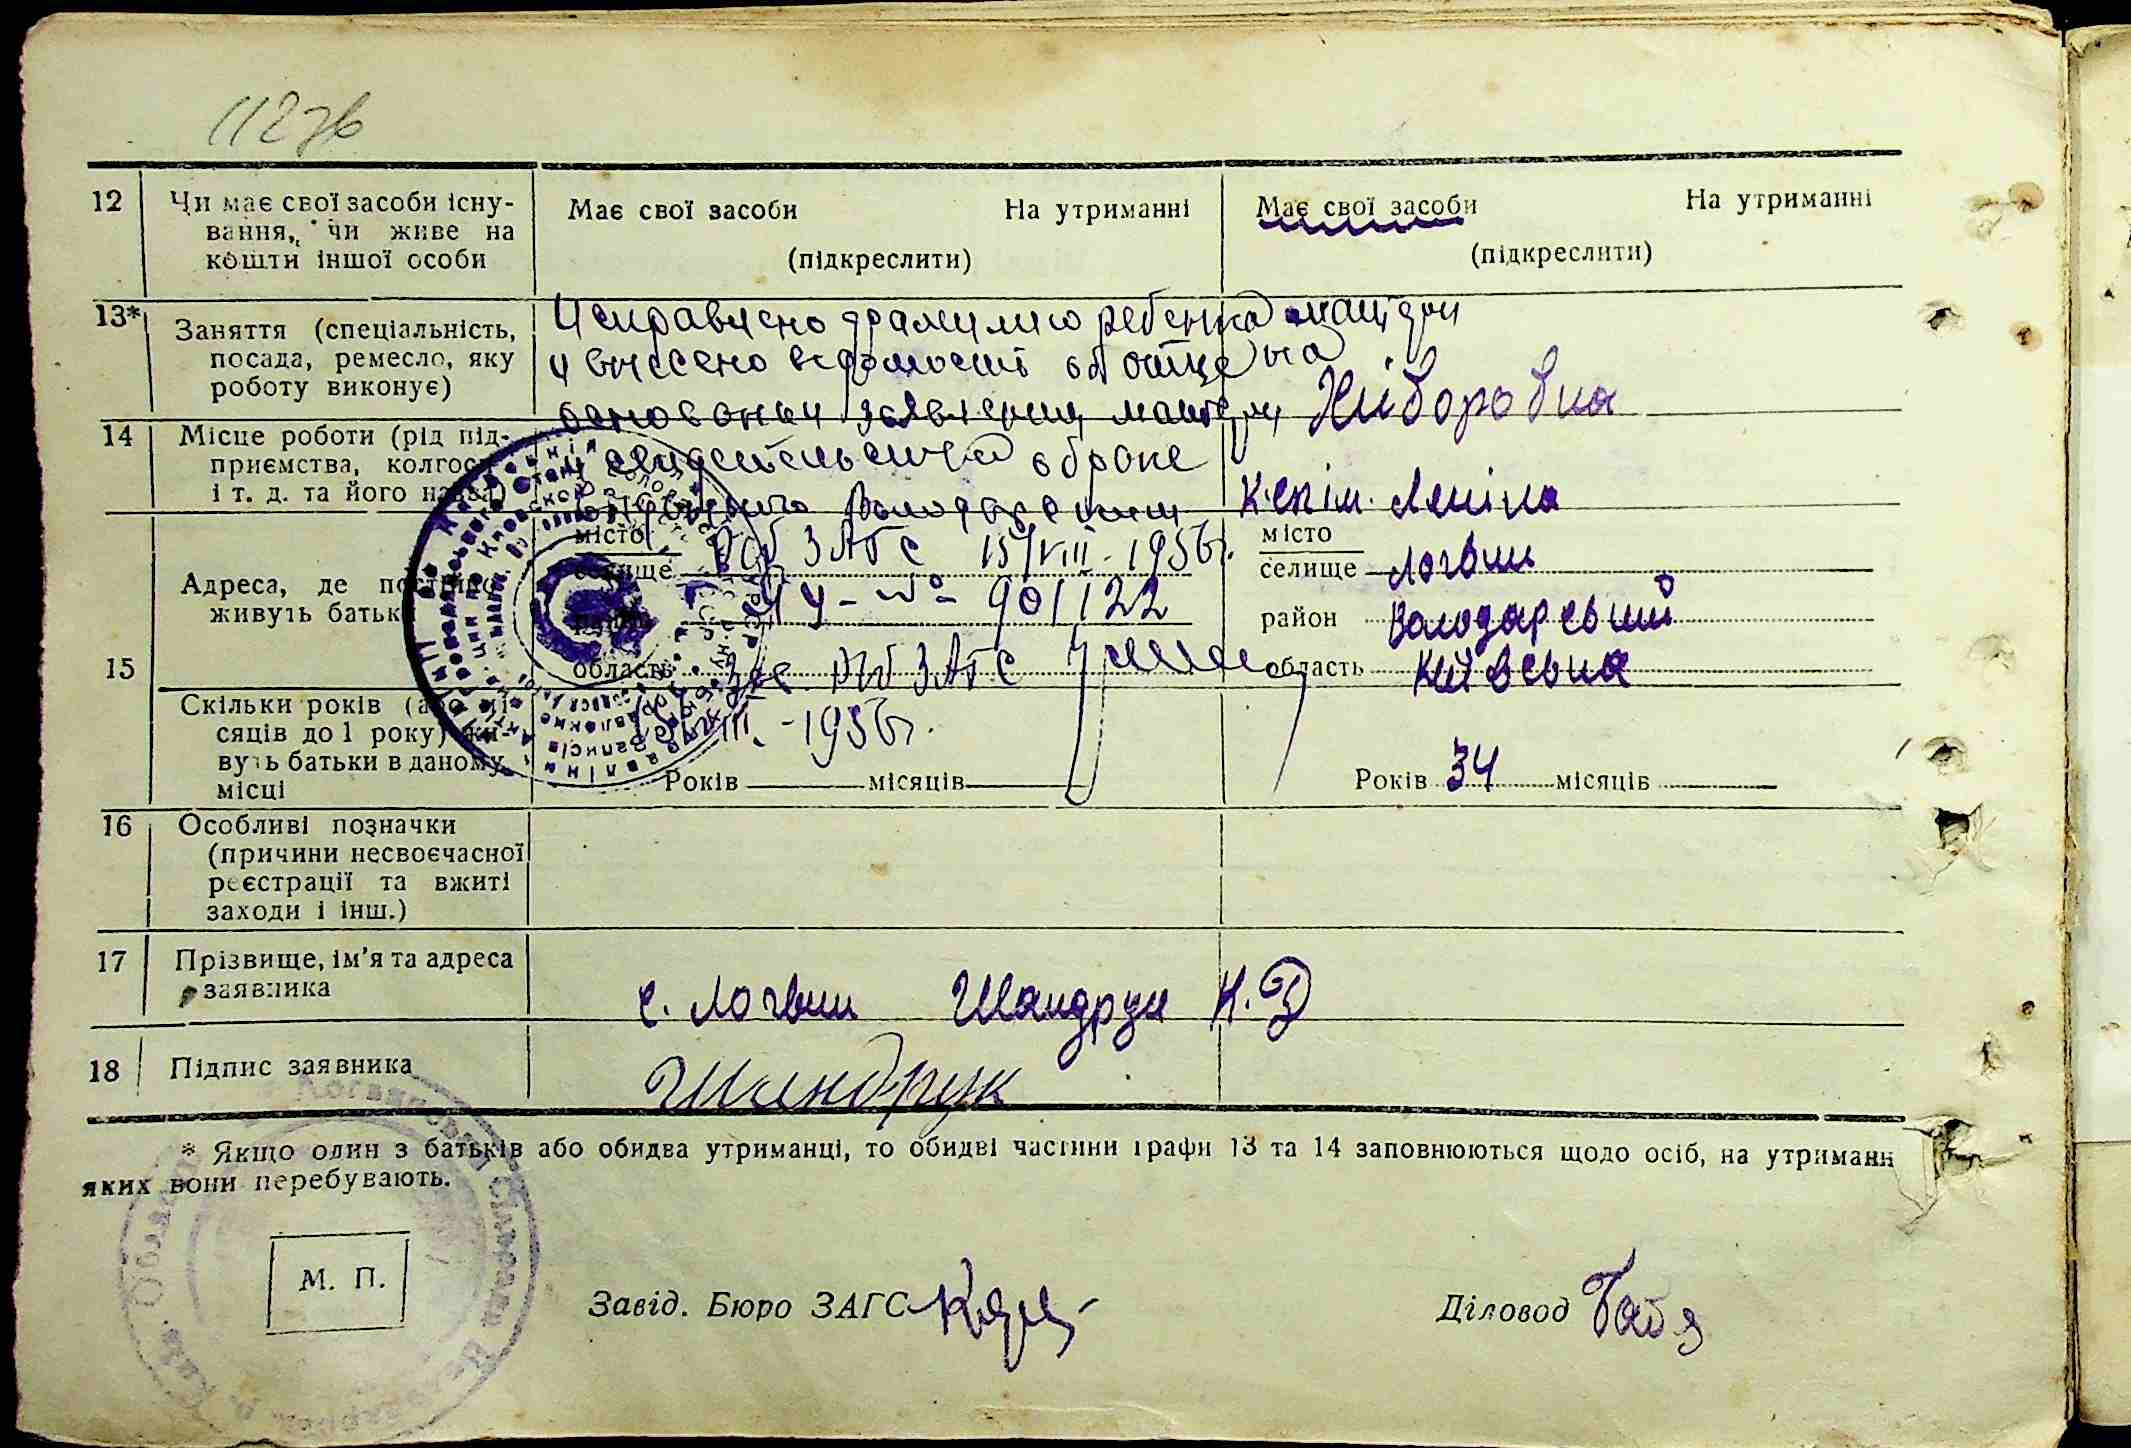 112 зв
12 Чи має свої засоби існу-
вання, чи живе на
кошти іншої особи
Має свої засоби На утриманні
(підкреслити)
Має свої засоби На утриманні
(підкреслити)
13* Заняття (спеціальність,
посада, ремесло, яку
роботу виконує)
Исправлено фамилию ребенка матери
и внесено відомості об отце на
основании заявления матери
и свидетельства о браке
выданного Володарским
Раб ЗАГС 15/VIII-1956г.
ІУ-№ 901122
Зав. Раб ЗАГС
15/VIII-1956г.
14 Місце роботи (рід під-
приємства, колгосп
і т. д. та його назва)
к-сп ім. Леніна
15 Адреса, де постійно
живуть батьки
місто
селище
район
область
місто
селище Логвин
район Володарський
область Київська
Скільки років (або мі-
сяців до 1 року) жи-
вуть батьки в даному
місці
Років місяців
Років 34 місяців
16 Особливі позначки
(причини несвоєчасної
реєстрації та вжиті
заходи і інш.)
17 Прізвище, ім'я та адреса
заявника
с. Логвин Шандрук К. Д
18 Підпис заявника
Шандрук
* Якщо один з батьків або обидва утриманці, то обидві частини графи 13 та 14 заповнюються щодо осіб, на утриманн
яких вони перебувають.
М. П.
Завід. Бюро ЗАГС
Діловод